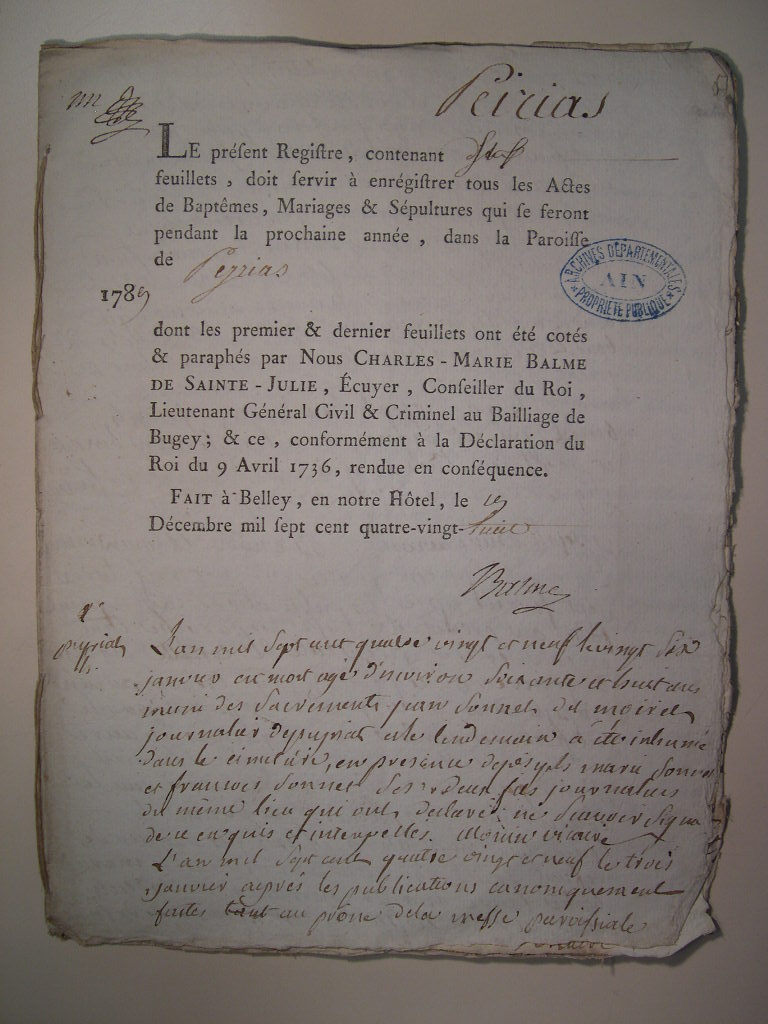 Peirias
LE préſent Regiſtre, contenant
feuillets, doit ſervir à enrégiſtrer tous les Actes
de Baptêmes, Mariages & Sépultures qui ſe feront
pendant la prochaine année, dans la Paroiſſe
de Peyrias
ARCHIVES DÉPARTEMENTALES
AIN
PROPRIÉTÉ PUBLIQUE
1789
dont les premier & dernier feuillets ont été cotés
& paraphés par Nous CHARLES-MARIE BALME
DE SAINTE-JULIE, Écuyer, Conſeiller du Roi,
Lieutenant Général Civil & Criminel au Bailliage de
Bugey; & ce, conformément à la Déclaration du
Roi du 9 Avril 1736, rendue en conſéquence.
FAIT à Belley, en notre Hôtel, le
Décembre mil ſept cent quatre-vingt-huit
Balme
peyrias
L'an mil sept cent quatre vingt et neuf le vingt six
janvier est mort agé d'environ soixante et huit ans
muni des sacrements jean sonnet dit moiret
journalier de peyrias et le lendemain a été inhumé
dans le cimetière, en présence de joseph marie sonnet
et francois sonnet ses deux fils journaliers
du même lieu qui ont déclaré ne scavoir signer
de ce enquis et interpellés. vicaire
L'an mil sept cent quatre vingt et neuf le trois
janvier après les publications canoniquement
faites tant au prône de la messe paroissiale